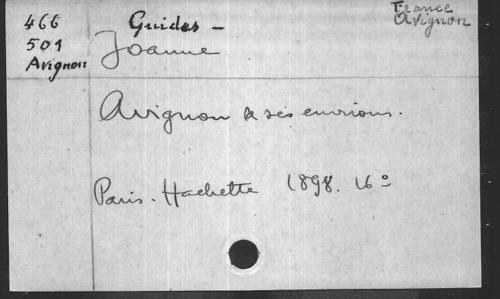 466
501
Avignon
Guides -
Joanne
France
Avignon
Avignon & ses environs.
Paris. Hachette 1898. 16°